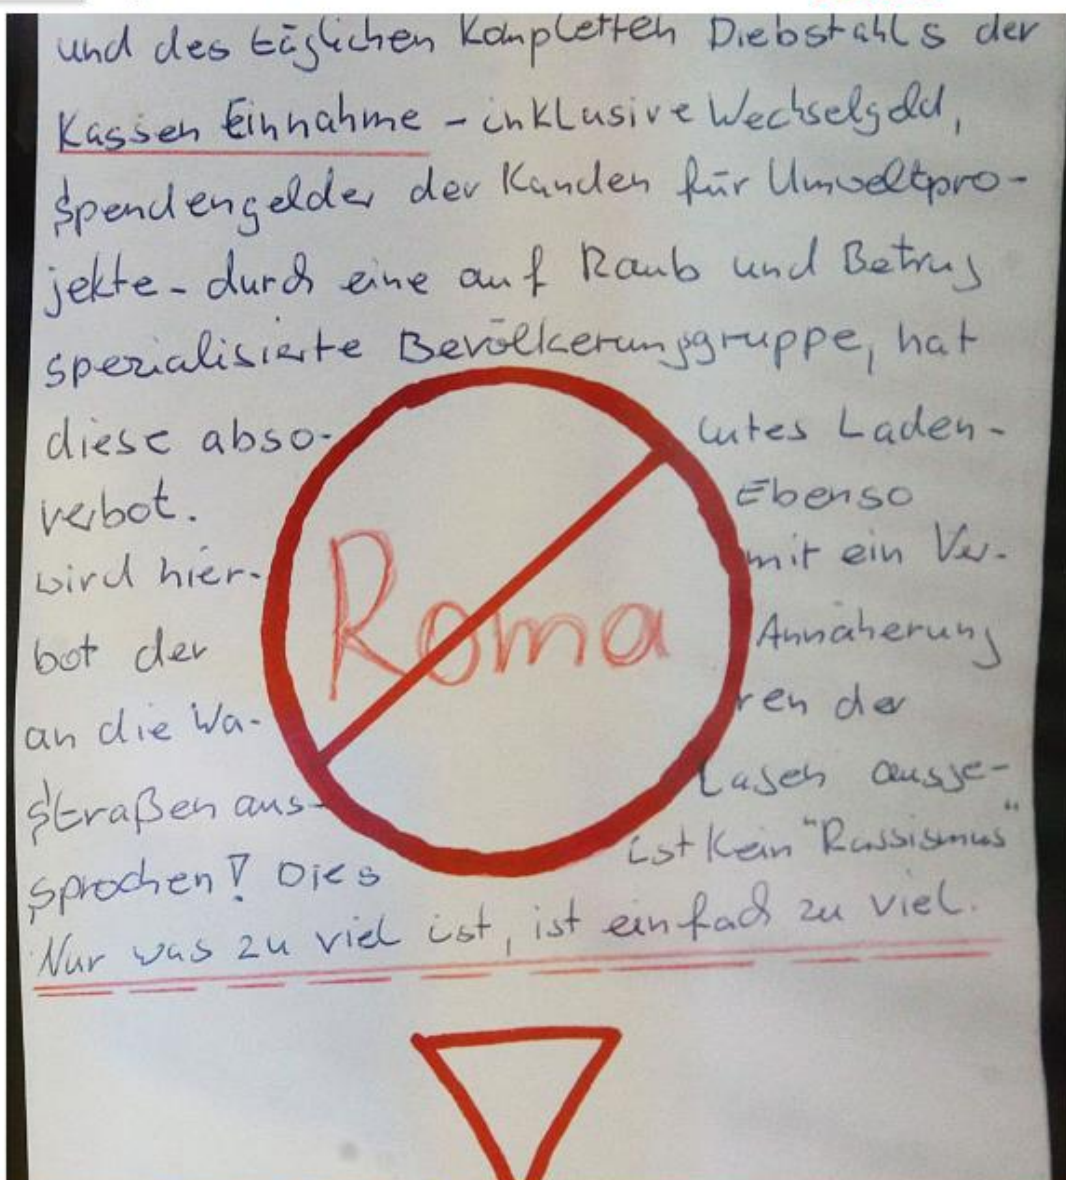 und des täglichen kompletten Diebstahls der
Kassen Einnahme - inklusive Wechselgeld,
Spendengelder der Kunden für Umweltpro-
jekte - durch eine auf Raub und Betrug
spezialisierte Bevölkerungsgruppe, hat
diese abso- lutes Laden-
verbot. Ebenso
wird hier- mit ein Ver-
bot der Annäherung
an die Wa- ren der
Straßen aus- lagen ausge-
sprochen! Dies ist kein "Rassismus"
Nur was zu viel ist, ist einfach zu viel.
Roma